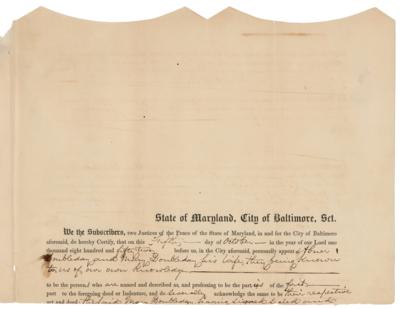 State of Maryland, City of Baltimore, Sct.
We the Subscribers, two Justices of the Peace of the State of Maryland, in and for the City of Baltimore
aforesaid, do hereby Certify, that on this day of October in the year of our Lord one
thousand eight hundred and fifty two before us, in the City aforesaid, personally appear Abner
Doubleday and Mary Doubleday his wife, they being known
to us of our own knowledge
to be the persons who are named and described as, and professing to be the parties of the first
part to the foregoing deed or Indenture, and do severally acknowledge the same to be their respective
act and deed Mary Doubleday having signed & sealed